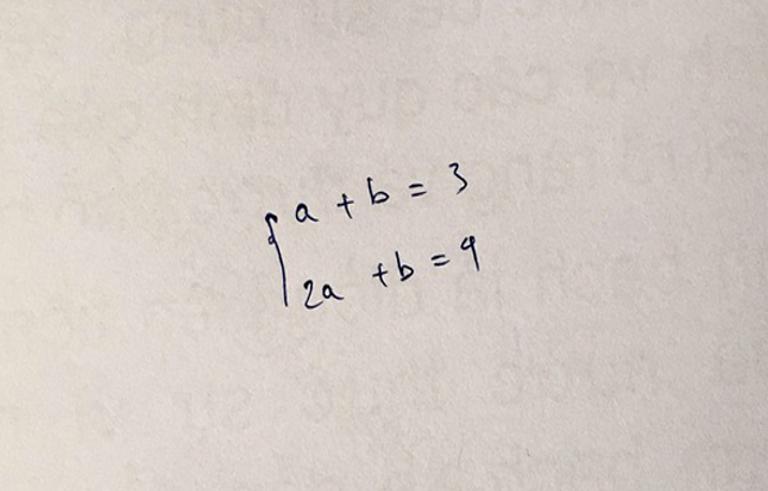 a + b = 3
2a + b = 4